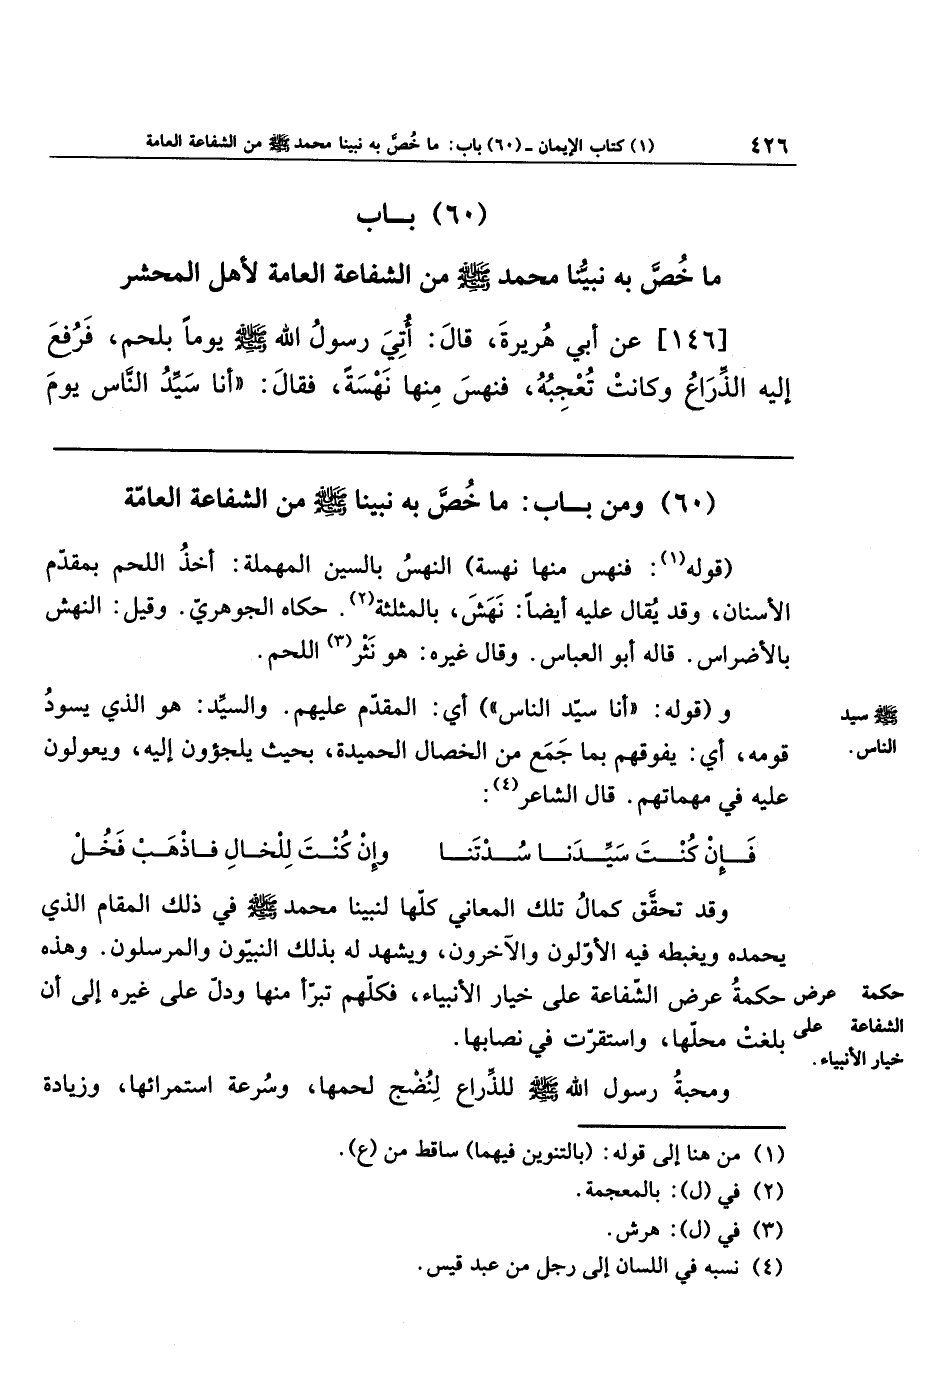 ٤٢٦ (١) كتاب الإيمان ـ (٦٠) باب: ما خُصَّ به نبينا محمد ﷺ من الشفاعة العامة
(٦٠) بــاب
ما خُصَّ به نبيُّنا محمد ﷺ من الشفاعة العامة لأهل المحشر
[١٤٦] عن أبي هُريرةَ، قالَ: أُتِيَ رسولُ الله ﷺ يوماً بلحم، فَرُفِعَ
إليه الذِّرَاعُ وكانتْ تُعْجِبُهُ، فنهسَ مِنها نَهْسَةً، فقالَ: «أنا سَيِّدُ النَّاس يومَ
(٦٠) ومن بــاب: ما خُصَّ به نبينا ﷺ من الشفاعة العامّة
(قوله(١): فنهس منها نهسة) النهسُ بالسين المهملة: أخذُ اللحم بمقدّم
الأسنان، وقد يُقال عليه أيضاً: نَهَشَ، بالمثلثة(٢). حكاه الجوهريّ. وقيل: النهش
بالأضراس. قاله أبو العباس. وقال غيره: هو نَثْر(٣) اللحم.
ﷺ سيد
الناس.
و (قوله: «أنا سيّد الناس») أي: المقدّم عليهم. والسيِّد: هو الذي يسودُ
قومه، أي: يفوقهم بما جَمَع من الخصال الحميدة، بحيث يلجؤون إليه، ويعولون
عليه في مهماتهم. قال الشاعر(٤):
فَــإِنْ كُنْــتَ سَيِّــدَنــا سُــدْتَنــا وإِنْ كُنْـتَ لِلْخـالِ فـاذْهَـبْ فَخُـلْ
وقد تحقَّق كمالُ تلك المعاني كلّها لنبينا محمد ﷺ في ذلك المقام الذي
يحمده ويغبطه فيه الأوّلون والآخرون، ويشهد له بذلك النبيّون والمرسلون. وهذه
حكمة عرض
الشفاعة على
خيار الأنبياء.
حكمةُ عرض الشّفاعة على خيار الأنبياء، فكلّهم تبرّأ منها ودلّ على غيره إلى أن
بلغتْ محلّها، واستقرّت في نصابها.
ومحبةُ رسول الله ﷺ للذِّراع لِنُضْج لحمها، وسُرعة استمرائها، وزيادة
(١) من هنا إلى قوله: (بالتنوين فيهما) ساقط من (ع).
(٢) في (ل): بالمعجمة.
(٣) في (ل): هرش.
(٤) نسبه في اللسان إلى رجل من عبد قيس.